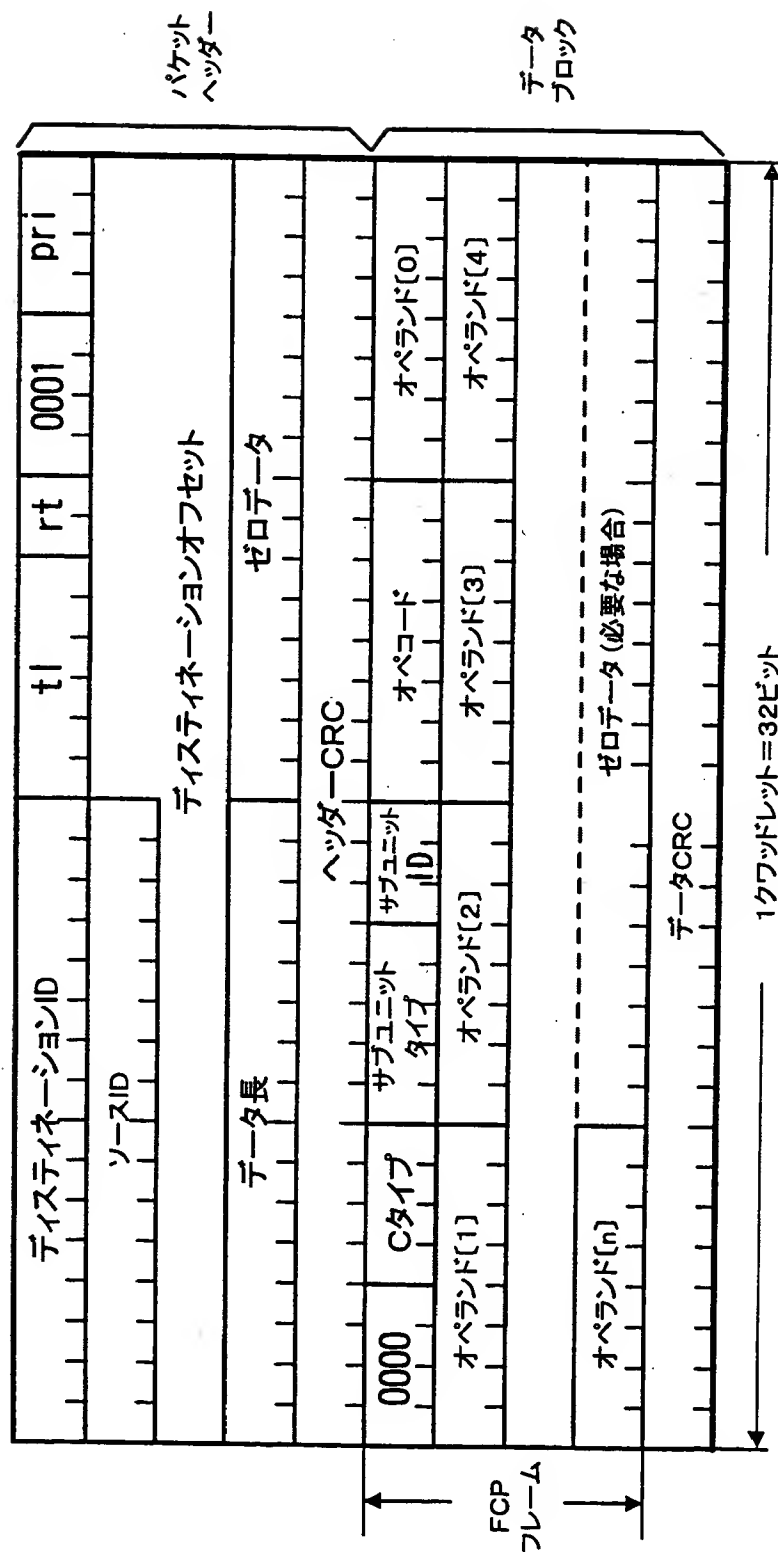 ディスティネーションID tl rt 0001 pri
ソースID
ディスティネーションオフセット
データ長 ゼロデータ
ヘッダーCRC
0000 Cタイプ サブユニット
タイプ サブユニット
ID オペコード オペランド[0]
オペランド[1] オペランド[2] オペランド[3] オペランド[4]
オペランド[n] ゼロデータ(必要な場合)
データCRC
パケット
ヘッダー
データ
ブロック
FCP
フレーム
1クワッドレット=32ビット